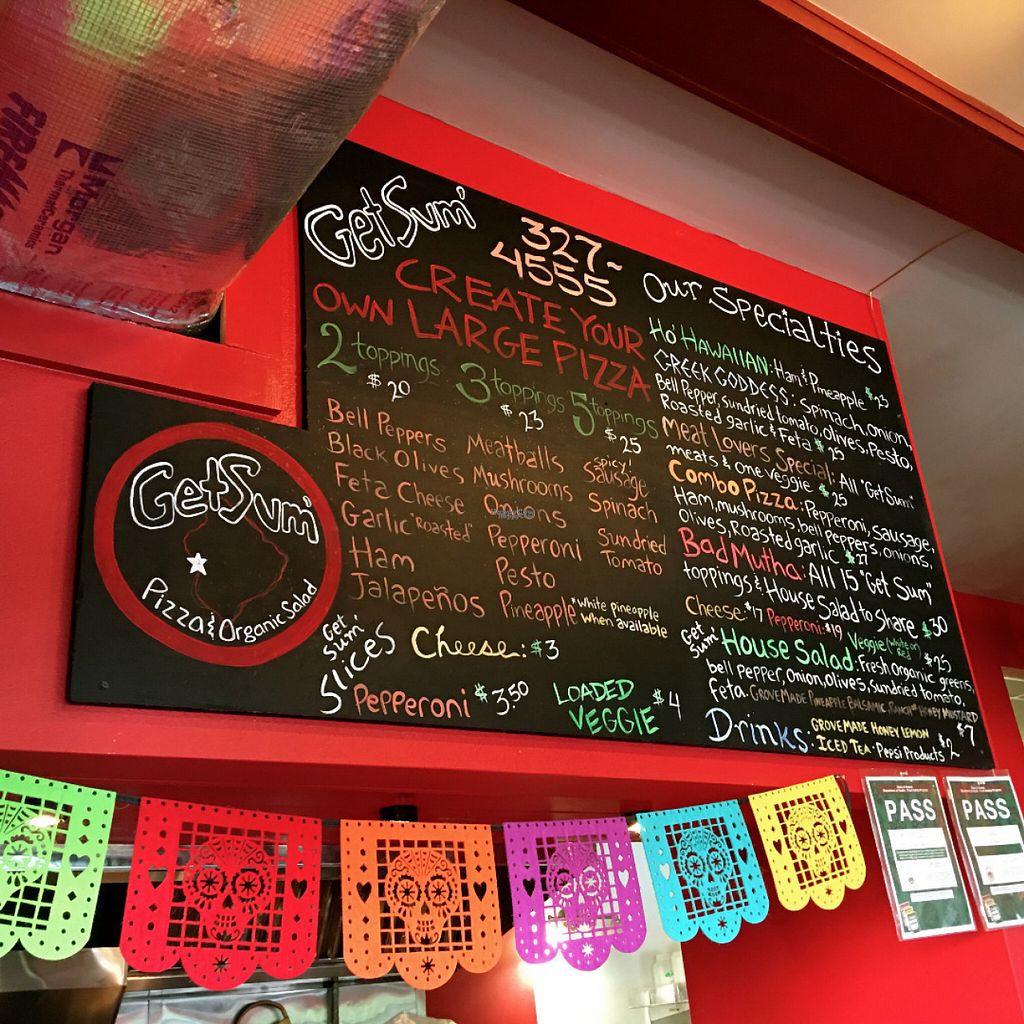 FIREWR
Morgan
ThermalCeramics
Get Sum'
327-
4555
CREATE YOUR
OWN LARGE PIZZA
2 toppings
$20
3 toppings
$23
5 toppings
$25
Bell Peppers
Black Olives
Feta Cheese
Garlic "Roasted"
Ham
Jalapeños
Meatballs
Mushrooms
Onions
Pepperoni
Pesto
Pineapple *white pineapple
when available
spicy!
Sausage
Spinach
Sundried
Tomato
Get
Sum'
Slices
Cheese: $3
Pepperoni $3.50
LOADED
VEGGIE $4
Our Specialties
Ho' HAWAIIAN: Ham & Pineapple $23
GREEK GODDESS: Spinach, onion,
Bell Pepper, sundried tomato, olives, Pesto,
Roasted garlic & Feta $25
Meat Lovers Special: All "Get Sum"
meats & one veggie $25
Combo Pizza: Pepperoni, Sausage,
Ham, mushrooms, bell peppers, onions,
Olives, Roasted garlic $27
Bad Mutha: All 15 "Get Sum"
toppings & House Salad to Share $30
Cheese: $17 Pepperoni: $19 Veggie $25
Get
Sum'
House Salad: Fresh organic greens,
bell pepper, onion, olives, sundried tomato,
feta. GROVEMADE PINEAPPLE BALSAMIC, RANCH or HONEY MUSTARD
$7
Drinks: GROVEMADE HONEY LEMON
ICED TEA · Pepsi Products $2
Get Sum'
Pizza & Organic Salad
PASS
PASS